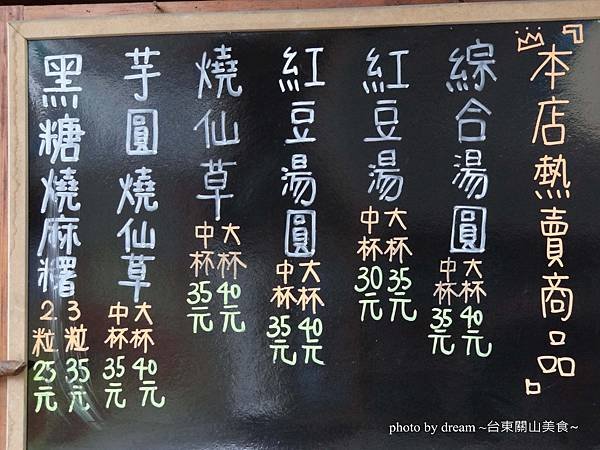 本店熱賣商品
綜合湯圓
大杯40元
中杯35元
紅豆湯
大杯35元
中杯30元
紅豆湯圓
大杯40元
中杯35元
燒仙草
大杯40元
中杯35元
芋圓燒仙草
大杯40元
中杯35元
黑糖燒麻糬
3粒35元
2粒25元
photo by dream ~台東關山美食~